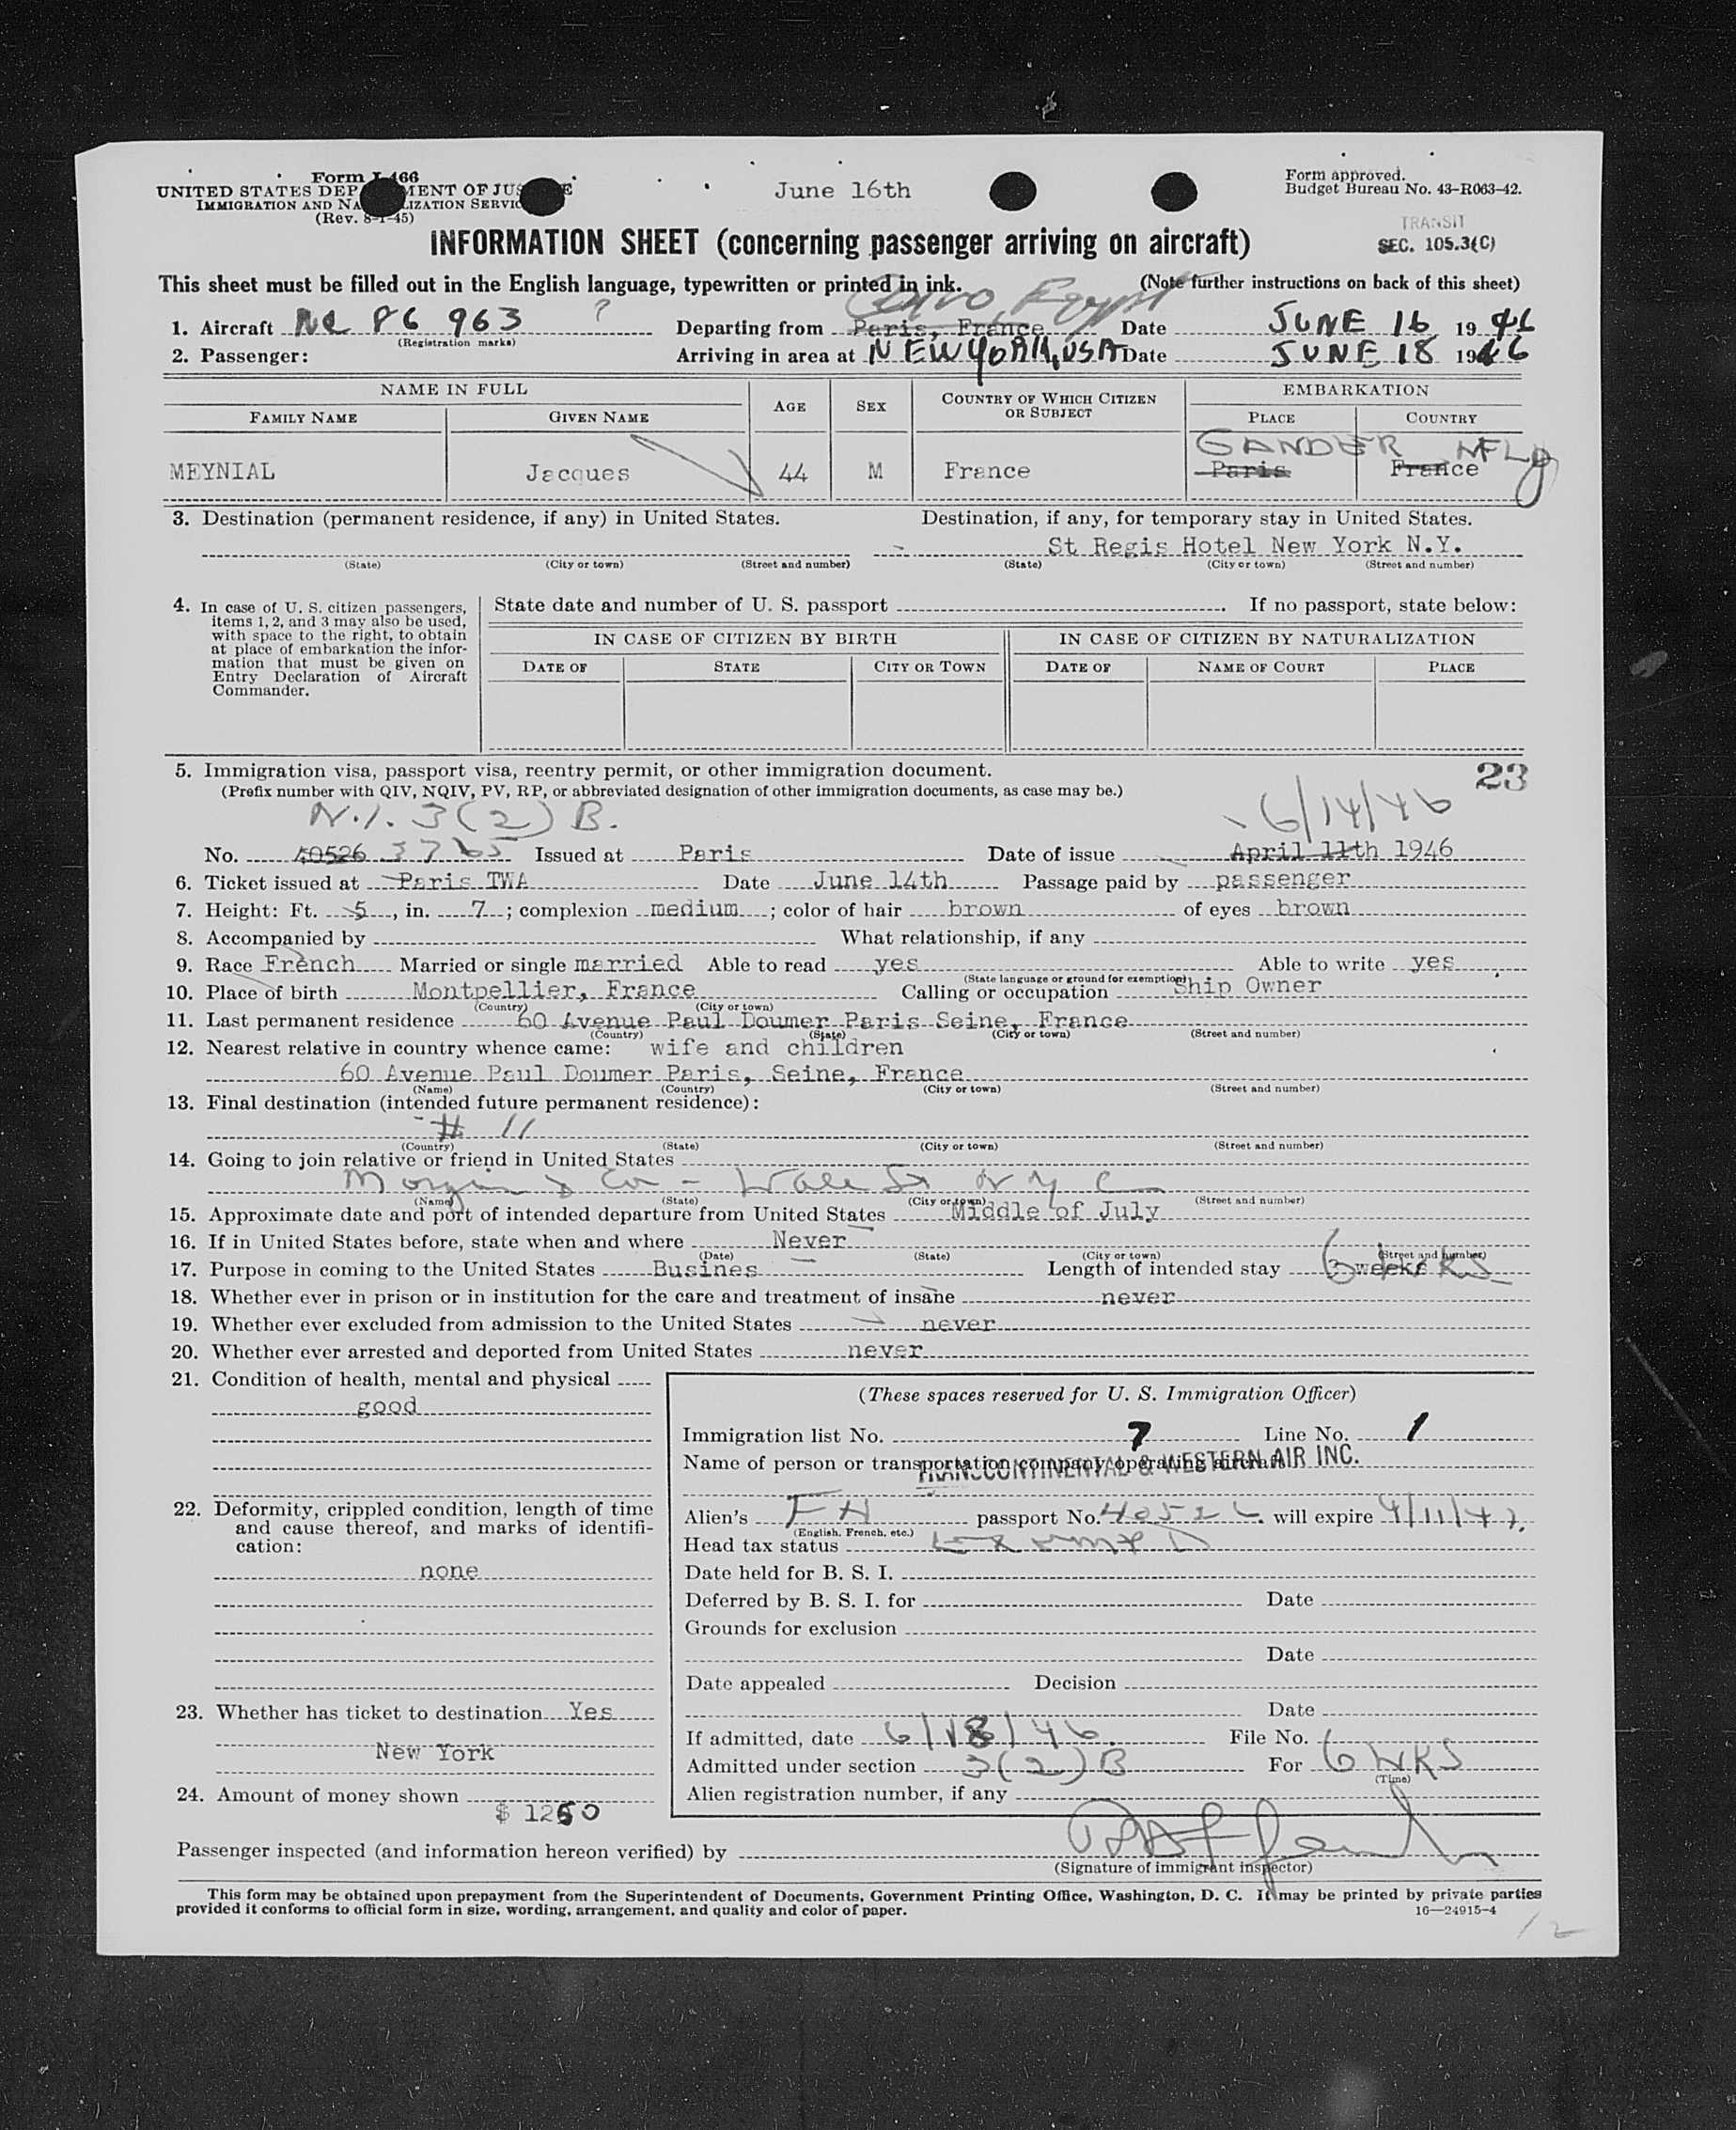 Form I-466
UNITED STATES DEPARTMENT OF JUSTICE
IMMIGRATION AND NATURALIZATION SERVICE
(Rev. 8-1-45)
June 16th
Form approved.
Budget Bureau No. 43-R063-42.
TRANSIT
SEC. 105.3(C)
INFORMATION SHEET (concerning passenger arriving on aircraft)
This sheet must be filled out in the English language, typewritten or printed in ink. (Note further instructions on back of this sheet)
Cairo, Egypt
1. Aircraft NC 86 963 ? Departing from Paris, France Date JUNE 16 1946
(Registration marks)
2. Passenger: Arriving in area at NEW YORK, USA Date JUNE 18 1946
NAME IN FULL AGE SEX COUNTRY OF WHICH CITIZEN OR SUBJECT EMBARKATION
FAMILY NAME GIVEN NAME PLACE COUNTRY
GANDER NFLD
MEYNIAL Jacques 44 M France Paris France
3. Destination (permanent residence, if any) in United States. Destination, if any, for temporary stay in United States.
St Regis Hotel New York N.Y.
(State) (City or town) (Street and number) (State) (City or town) (Street and number)
4. In case of U. S. citizen passengers, items 1, 2, and 3 may also be used, with space to the right, to obtain at place of embarkation the information that must be given on Entry Declaration of Aircraft Commander.
State date and number of U. S. passport . If no passport, state below:
IN CASE OF CITIZEN BY BIRTH IN CASE OF CITIZEN BY NATURALIZATION
DATE OF STATE CITY OR TOWN DATE OF NAME OF COURT PLACE
5. Immigration visa, passport visa, reentry permit, or other immigration document. 23
(Prefix number with QIV, NQIV, PV, RP, or abbreviated designation of other immigration documents, as case may be.)
N.I. 3(2) B. 6/14/46
No. 40526 3765 Issued at Paris Date of issue April 11th 1946
6. Ticket issued at Paris TWA Date June 14th Passage paid by passenger
7. Height: Ft. 5, in. 7; complexion medium; color of hair brown of eyes brown
8. Accompanied by What relationship, if any
9. Race French Married or single married Able to read yes Able to write yes
(State language or ground for exemption)
10. Place of birth Montpellier, France Calling or occupation Ship Owner
(Country) (City or town)
11. Last permanent residence 60 Avenue Paul Doumer Paris Seine, France
(Country) (State) (City or town) (Street and number)
12. Nearest relative in country whence came: wife and children
60 Avenue Paul Doumer Paris, Seine, France
(Name) (Country) (City or town) (Street and number)
13. Final destination (intended future permanent residence):
# 11
(Country) (State) (City or town) (Street and number)
14. Going to join relative or friend in United States
Morgan & Co - Wall St N Y C
(Name) (State) (City or town) (Street and number)
15. Approximate date and port of intended departure from United States Middle of July
16. If in United States before, state when and where Never
(Date) (State) (City or town) (Street and number)
17. Purpose in coming to the United States Busines Length of intended stay 6 weeks WKS
18. Whether ever in prison or in institution for the care and treatment of insane never
19. Whether ever excluded from admission to the United States never
20. Whether ever arrested and deported from United States never
21. Condition of health, mental and physical
good
(These spaces reserved for U. S. Immigration Officer)
Immigration list No. 7 Line No. 1
Name of person or transportation company operating aircraft
TRANSCONTINENTAL & WESTERN AIR INC.
22. Deformity, crippled condition, length of time and cause thereof, and marks of identification:
none
Alien's FH passport No. 40526 will expire 4/11/47.
(English, French, etc.)
Head tax status Exempt
Date held for B. S. I.
Deferred by B. S. I. for Date
Grounds for exclusion
Date
Date appealed Decision
Date
23. Whether has ticket to destination Yes
New York
If admitted, date 6/18/46. File No.
Admitted under section 3(2)B For 6 WKS
(Time)
24. Amount of money shown
$ 1250
Alien registration number, if any
Passenger inspected (and information hereon verified) by
(Signature of immigrant inspector)
This form may be obtained upon prepayment from the Superintendent of Documents, Government Printing Office, Washington, D. C. It may be printed by private parties
provided it conforms to official form in size, wording, arrangement, and quality and color of paper. 16—24915-4
12